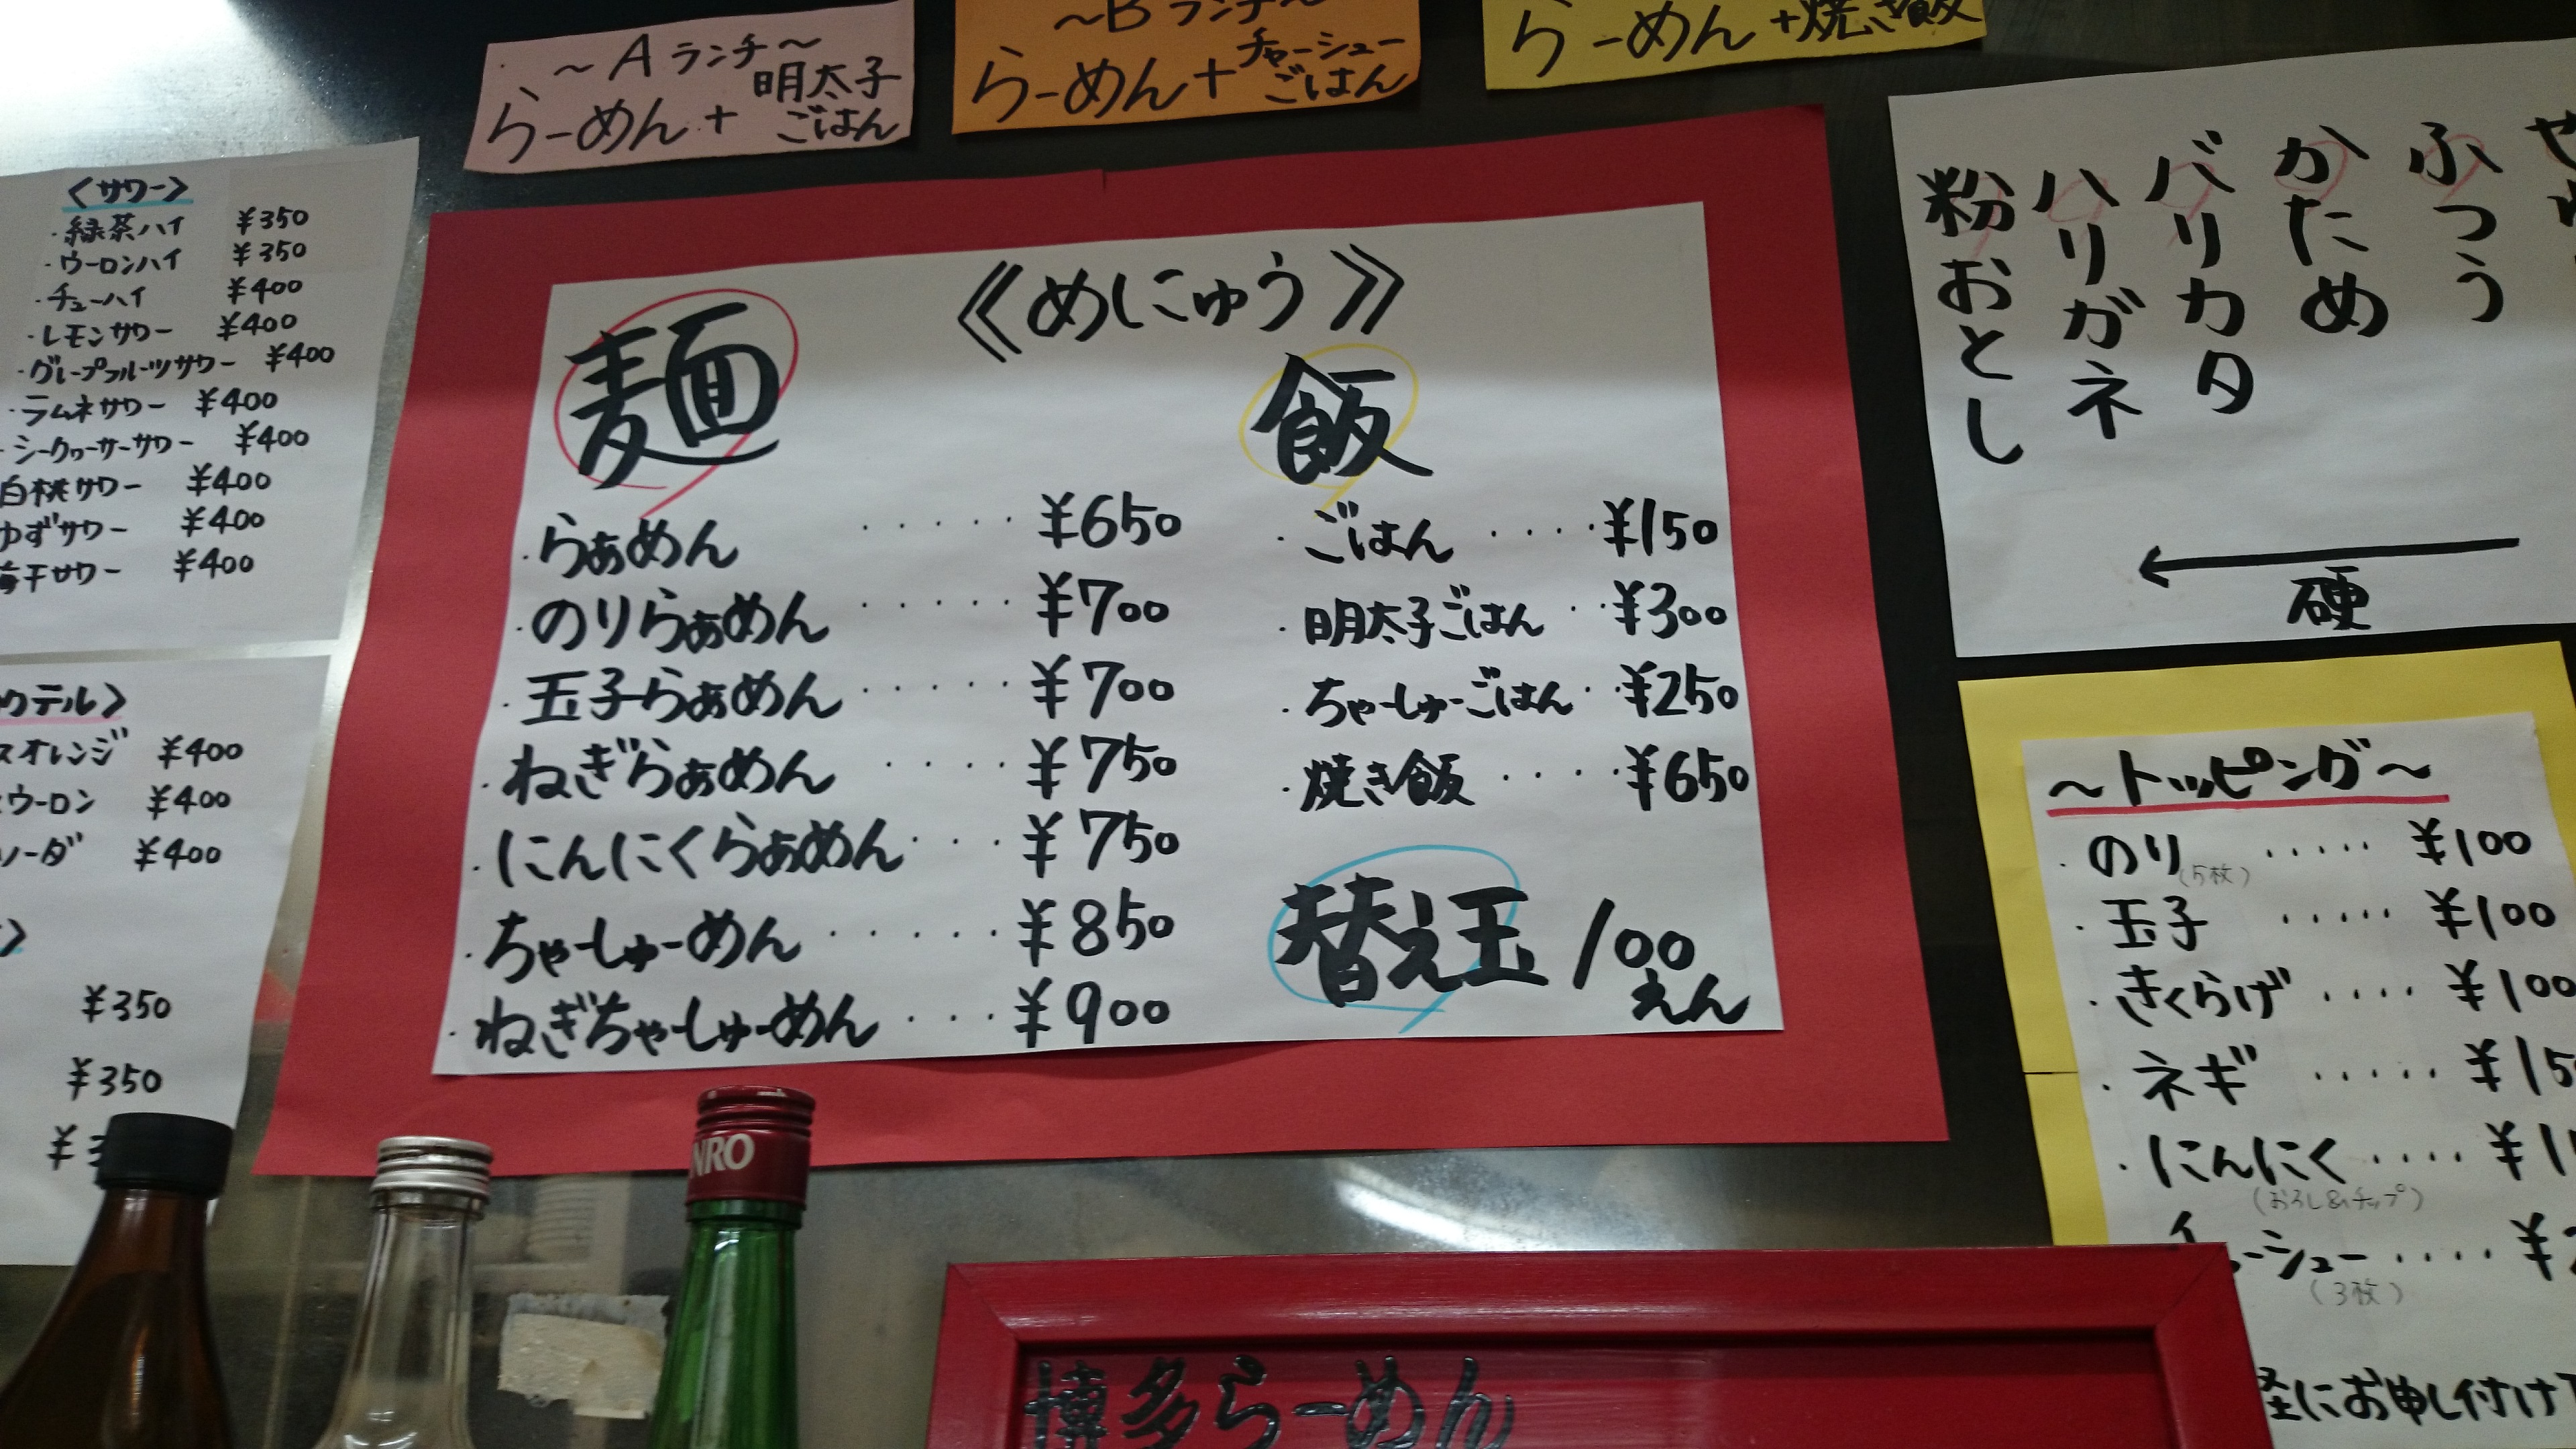 ～Aランチ～
らーめん+明太子ごはん
～Bランチ～
らーめん+チャーシューごはん
らーめん+焼き飯
〈サワー〉
・緑茶ハイ ¥350
・ウーロンハイ ¥350
・チューハイ ¥400
・レモンサワー ¥400
・グレープフルーツサワー ¥400
・ラムネサワー ¥400
・シークヮーサーサワー ¥400
白桃サワー ¥400
ゆずサワー ¥400
干サワー ¥400
クテル〉
スオレンジ ¥400
ウーロン ¥400
ソーダ ¥400
¥350
¥350
《めにゅう》
麺
・らぁめん ・・・・・ ¥650
・のりらぁめん ・・・・・ ¥700
・玉子らぁめん ・・・・・ ¥700
・ねぎらぁめん ・・・・ ¥750
・にんにくらぁめん ・・・ ¥750
・ちゃーしゅーめん ・・・・・ ¥850
・ねぎちゃーしゅーめん ・・・ ¥900
飯
・ごはん ・・・・ ¥150
・明太子ごはん ・・ ¥300
・ちゃーしゅーごはん ・・ ¥250
・焼き飯 ・・・・ ¥650
替え玉 100えん
ふつう
かため
バリカタ
ハリガネ
粉おとし
←
硬
～トッピング～
・のり(5枚) ・・・・・ ¥100
・玉子 ・・・・・ ¥100
・きくらげ ・・・・ ¥100
・ネギ ・・・・・ ¥15
・にんにく ・・・・ ¥1
(おろし&チップ)
ーシュー ・・・・ ¥
(3枚)
軽にお申し付け下
NRO
博多らーめん